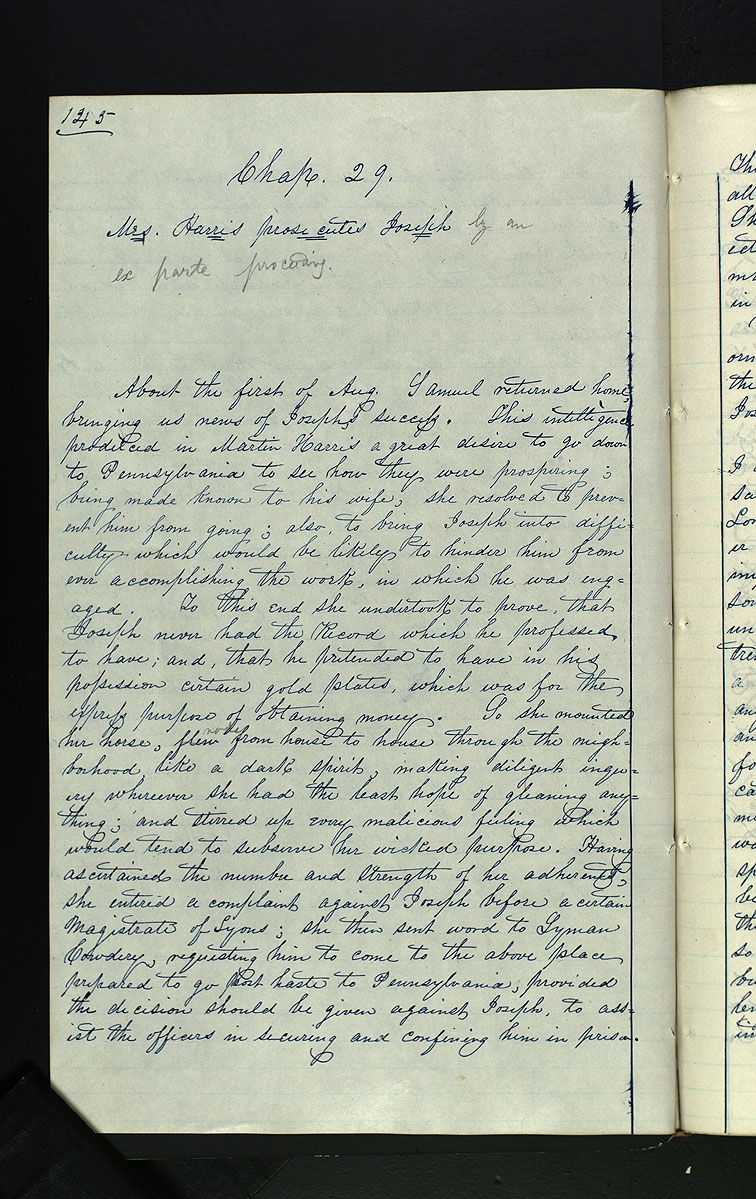 145
Chap. 29.
Mrs. Harris prosecutes Joseph by an
ex parte proceeding.
About the first of Aug. Samuel returned home,
bringing us news of Joseph's success. This intelligence
produced in Martin Harris a great desire to go down
to Pennsylvania to see how they were prospiring;
being made known to his wife, she resolved to prev=
ent him from going; also, to bring Joseph into diffi=
culty which would be likely to hinder him from
ever accomplishing the work, in which he was eng=
aged. To this end she undertook to prove, that
Joseph never had the Record which he professed
to have; and, that he pretended to have in his
possession certain gold plates, which was for the
express purpose of obtaining money. So she mounted
her horse, flew rode from house to house through the neigh=
borhood, like a dark spirit, making diligent inqu=
iry wherever she had the least hope of gleaning any=
thing; and stirred up every malicious feeling which
would tend to subserve her wicked purpose. Having
ascertained the number and strength of her adherents,
she entered a complaint against Joseph before a certain
Magistrate of Lyons; she then sent word to Lyman
Cowdery, requesting him to come to the above place
prepared to go post haste to Pennsylvania; provided
the decision should be given against Joseph, to ass=
ist the officers in securing and confining him in prison.